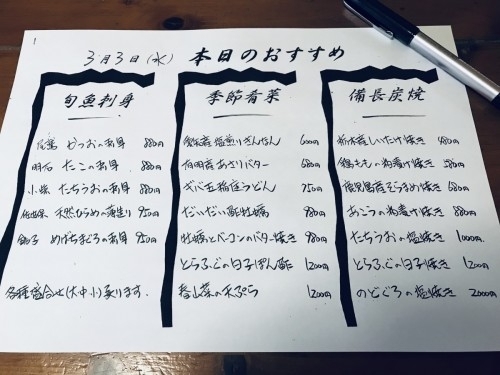 3月3日(水) 本日のおすすめ
旬魚刺身
かつおの刺身 880円
明石 たこの刺身 880円
小柴 たちうおの刺身 880円
佐世保 天然ひらめの薄造り 950円
銚子 めばちまぐろの刺身 950円
各種盛合せ(大中小)承ります.
季節肴菜
塩煎りぎんなん 600円
あさりバター 680円
稲庭うどん 750円
だいだい酢牡蠣 980円
牡蠣とベーコンのバター焼き 980円
とらふぐの白子ぽん酢 1200円
春山菜の天ぷら 1200円
備長炭焼
栃木産しいたけ焼き 480円
鶏ももの 焼き 580円
鹿児島産そらまめ焼き 680円
あこうの 焼き 880円
たちうおの塩焼き 1000円
とらふぐの白子焼き 1200円
のどぐろの塩焼き 2000円